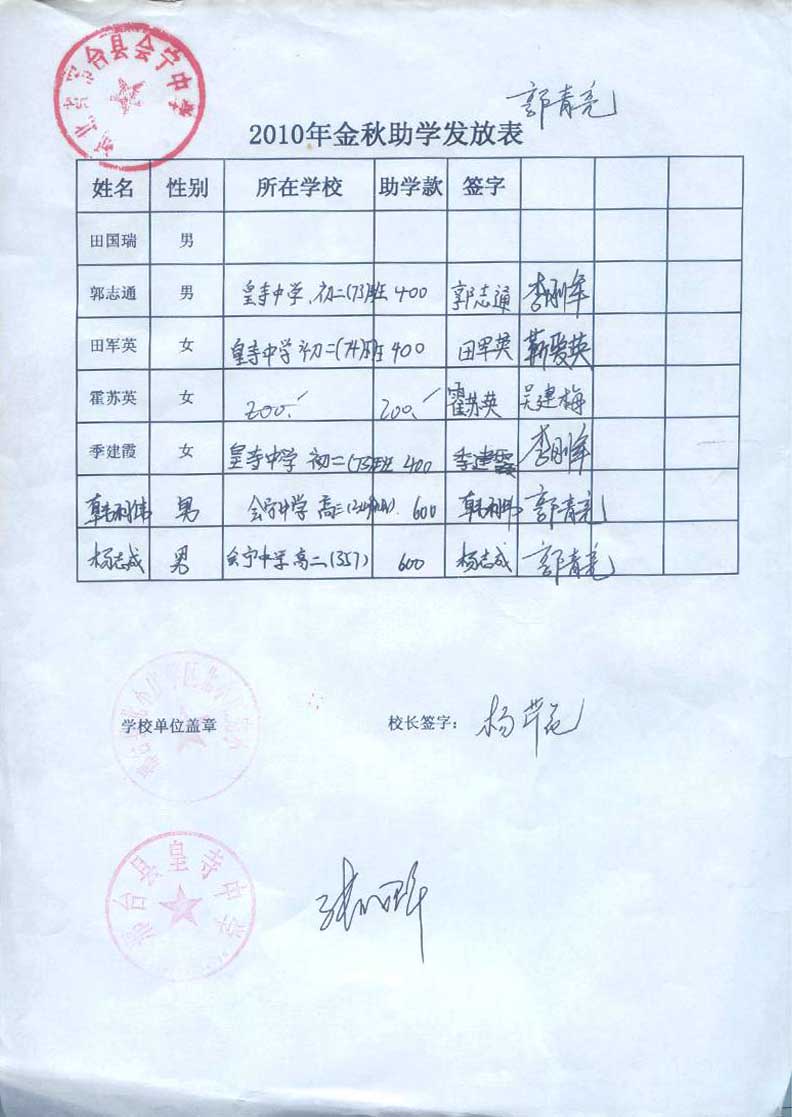 台县会宁中学
郭青亮
2010年金秋助学发放表
姓名 性别 所在学校 助学款 签字
田国瑞 男
郭志通 男 皇寺中学 初二(73)班 400 郭志通
田军英 女 皇寺中学 初二(74)班 400 田军英 靳爱英
霍苏英 女 200. 200. 霍苏英 吴建梅
季建霞 女 皇寺中学 初二(73)班 400 季建霞
韩利伟 男 会宁中学 高二 600 韩利伟 郭青亮
杨志成 男 会宁中学高二(357) 600 杨志成 郭青亮
学校单位盖章 校长签字: 杨
台县皇寺中学